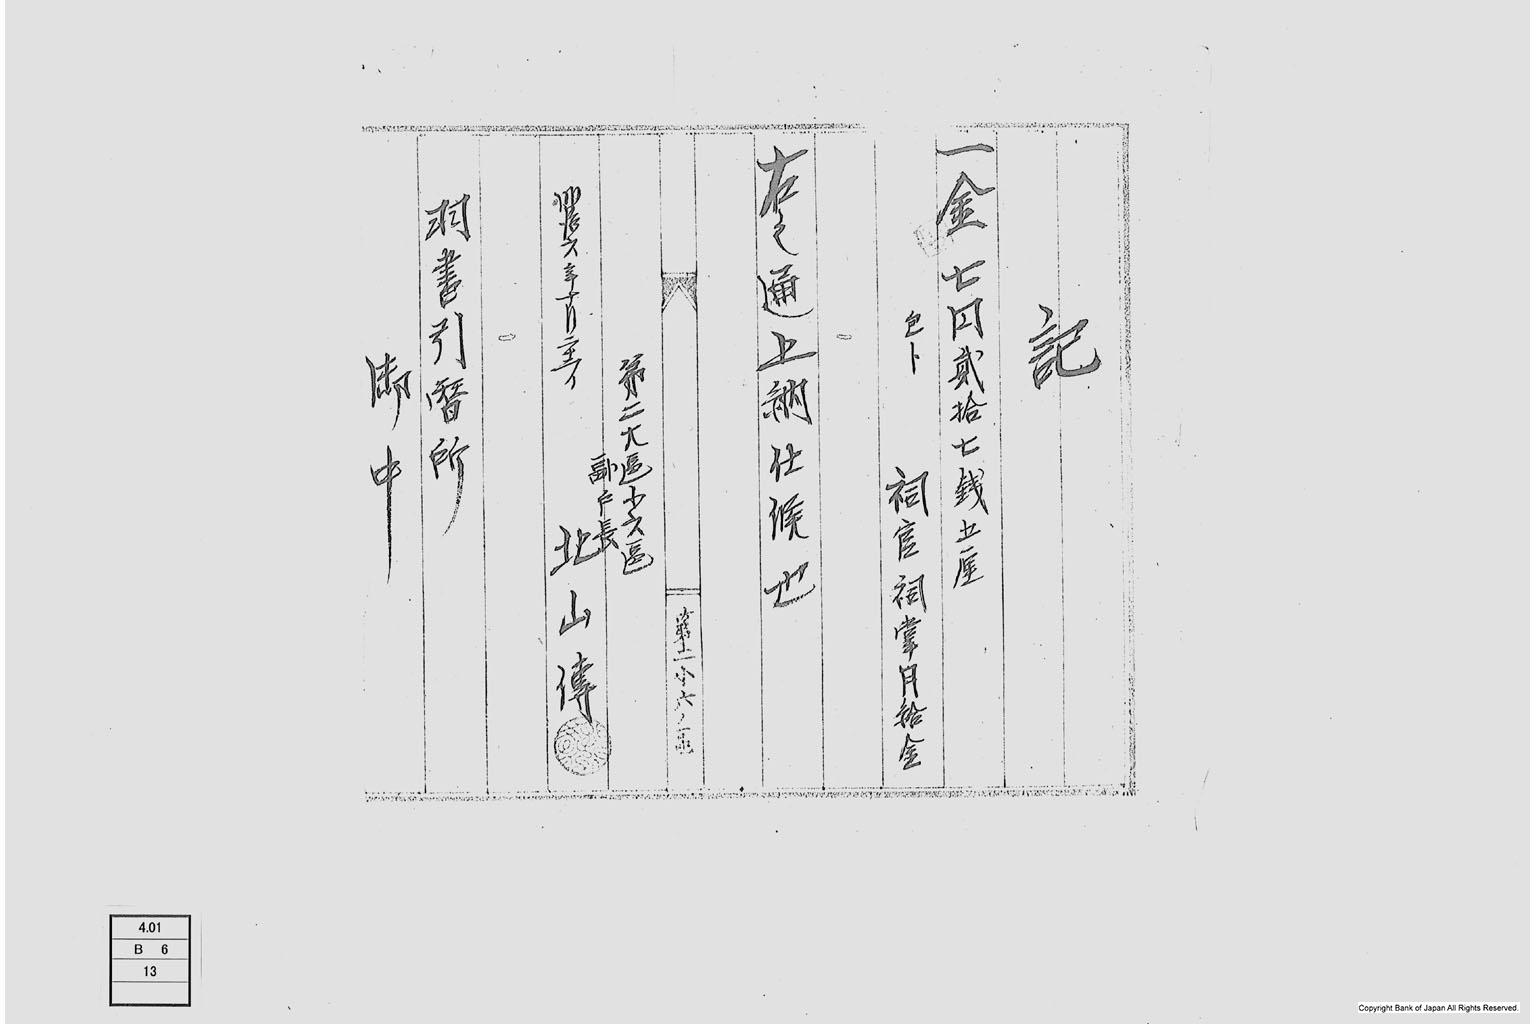 記
一金七円貳拾七銭五厘
包ト
祠官祠掌月給金
右之通上納仕候也
第二小六ノ區
第二大區小六區
副戸長
北山傳
明治六年十月二十二日
羽書引替所
御中
4.01
B 6
13
Copyright Bank of Japan All Rights Reserved.